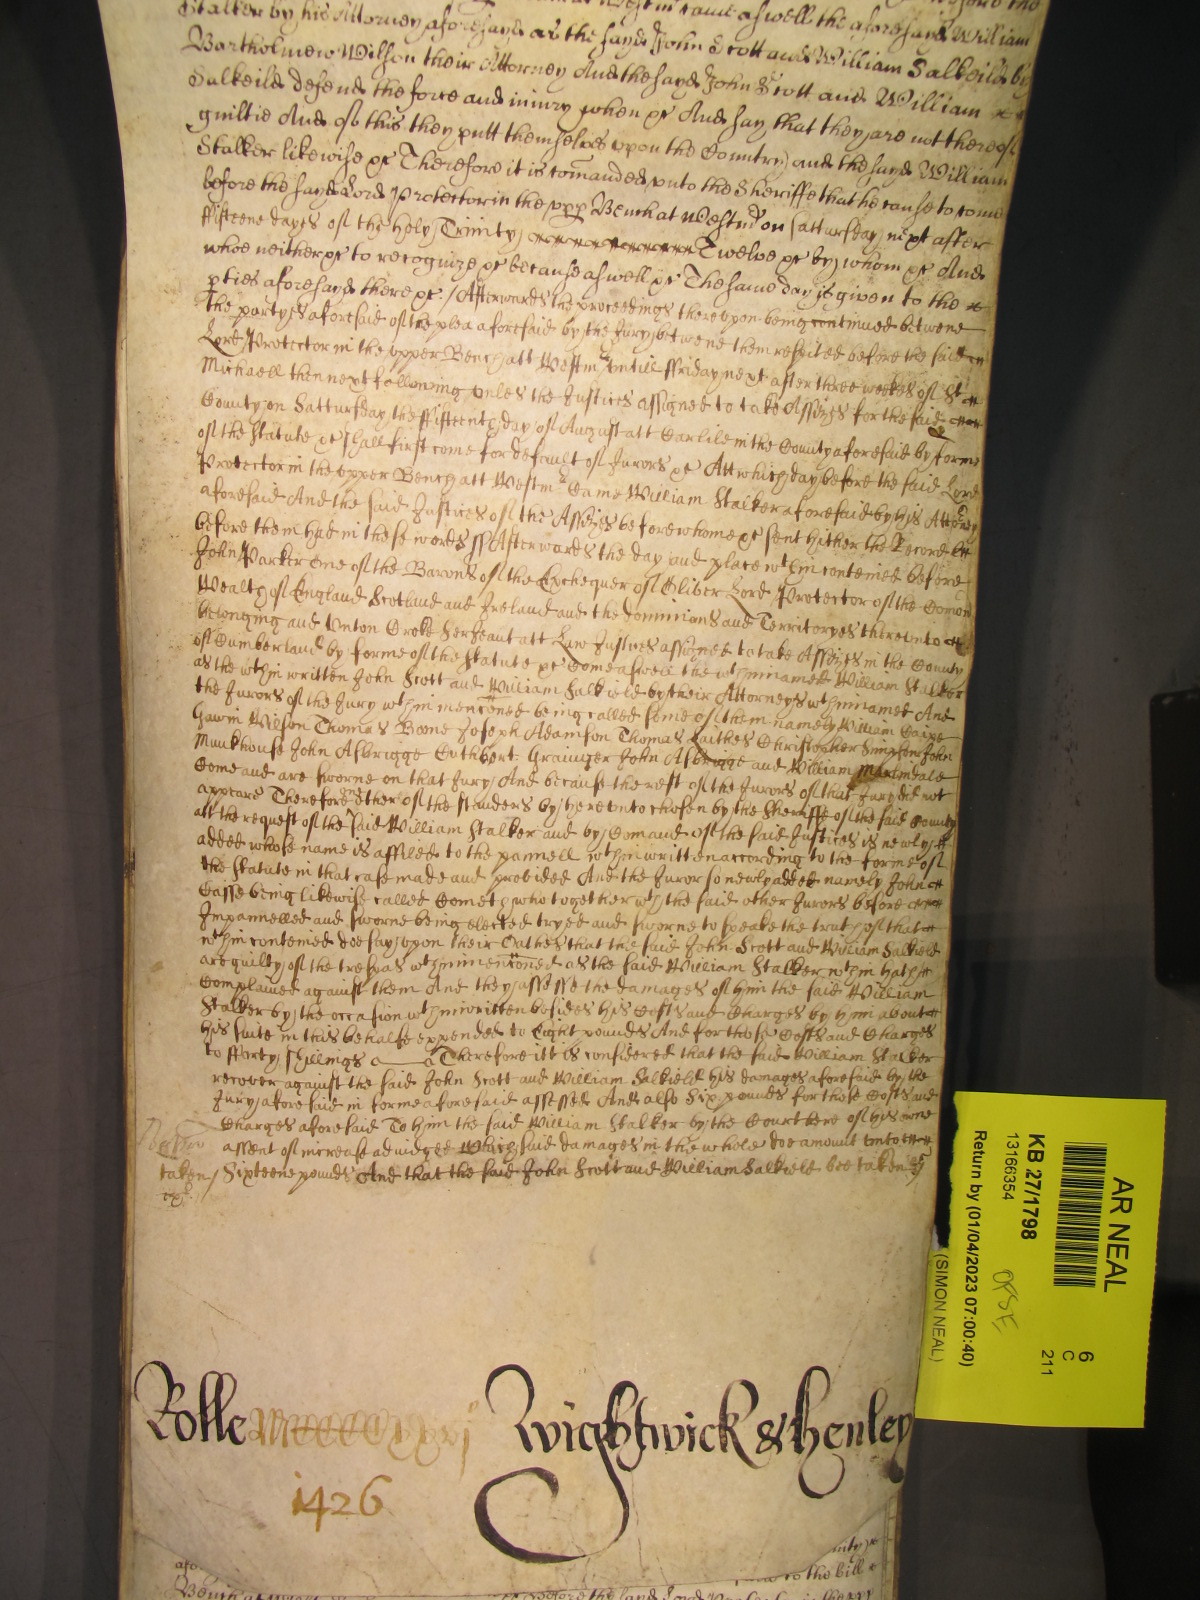 Stalker by his Attorney aforesayd as the sayd John Scott and William Salkeild by
Bartholmew Wilson their Attorney And the sayd John Scott and William
Salkeild defend the force and injury when &c And say that they are not thereof
guiltie And of this they putt themselves upon the Country and the sayd William
Stalker likewise &c Therefore it is comanded unto the Sheriffe that he cause to come
before the sayd Lord Protector in the upp Bench at Westmr on Satturday next after
fifteene dayes of the Holy Trinity Twelve &c by whom &c And
whoe neither &c to recognize &c because aswell &c The same day is given to the
pties aforesayd there &c / Afterwards the proceedings thereupon being continued betwene
the partyes aforesaid of the plea aforesaid by the Jury betwene them respited before the said
Lord Protector in the upper Bench att Westmr untill ffriday next after three weekes of St
Michaell then next following unles the Justices assigned to take Assizes for the said
County on Satturday the ffifteenth day of August att Carlile in the County aforesaid by forme
of the Statute &c shall first come for default of Jurors &c Att which day before the said Lord
Protector in the upper Bench att Westmr Came William Stalker aforesaid by his Attorney
aforesaid And the said Justices of the Assizes before whome &c sent hither the Record
before them had in these words ss Afterwards the day and place wthin conteined before
John Parker one of the Barons of the Exchequer of Oliver Lord Protector of the Comon
Wealth of England Scotland and Ireland and the dominions and Territoryes thereunto
belonging and Unton Croke Serjeant att Law Justices assigned to take Assizes in the County
of Cumberland by forme of the Statute &c Come aswell the wthinnamed William Stalker
as the wthin written John Scott and William Salkield by their Attorneys wthinnamed And
the Jurors of the Jury wthin menconed being called some of them namely William
Gawin Wilson Thomas Boone Joseph Adamson Thomas Laithes Christopher Simpson John
Munkhouse John Asbrigge Cuthbert Grainger John Asbrigge and William Martindale
Come and are sworne on that Jury And because the rest of the Jurors of that Jury did not
appeare Therefore other of the standers by hereunto chosen by the Sheriffe of the said County
att the request of the said William Stalker and by Comand of the said Justices is newly
added whose name is affiled to the pannell wthin written according to the forme of
the Statute in that case made and provided And the Juror so newly added namely John
Casse being likewise called Cometh who together wth the said other Jurors before
Impannelled and sworne being elected tryed and sworne to speake the truth of that
wthin conteined doe say upon their Oathes that the said John Scott and William Salkield
are guilty of the trespas wthin mencioned as the said William Stalker wthin hath
Complained against them And they assesse the damages of him the said William
Stalker by the occasion wthin written besides his Costs and Charges by him about
his suite in this behalfe expended to Eight pounds And for those Costs and Charges
to fforty shillings Therefore itt is considered that the said William Stalker
recover against the said John Scott and William Salkield his damages aforesaid by the
Jury aforesaid in forme aforesaid assessed And also Six pounds for those Costs and
Charges aforesaid To him the said William Stalker by the Court here of his owne
assent of increase adjudged Which said damages in the whole doe amount unto
taken / Sixteene pounds And that the said John Scott and William Salkield bee taken &c
Rolle Wightwick & Henley
1426
AR NEAL
KB 27/1798
13166354
Return by (01/04/2023 07:00:40)
(SIMON NEAL)
6
C
211